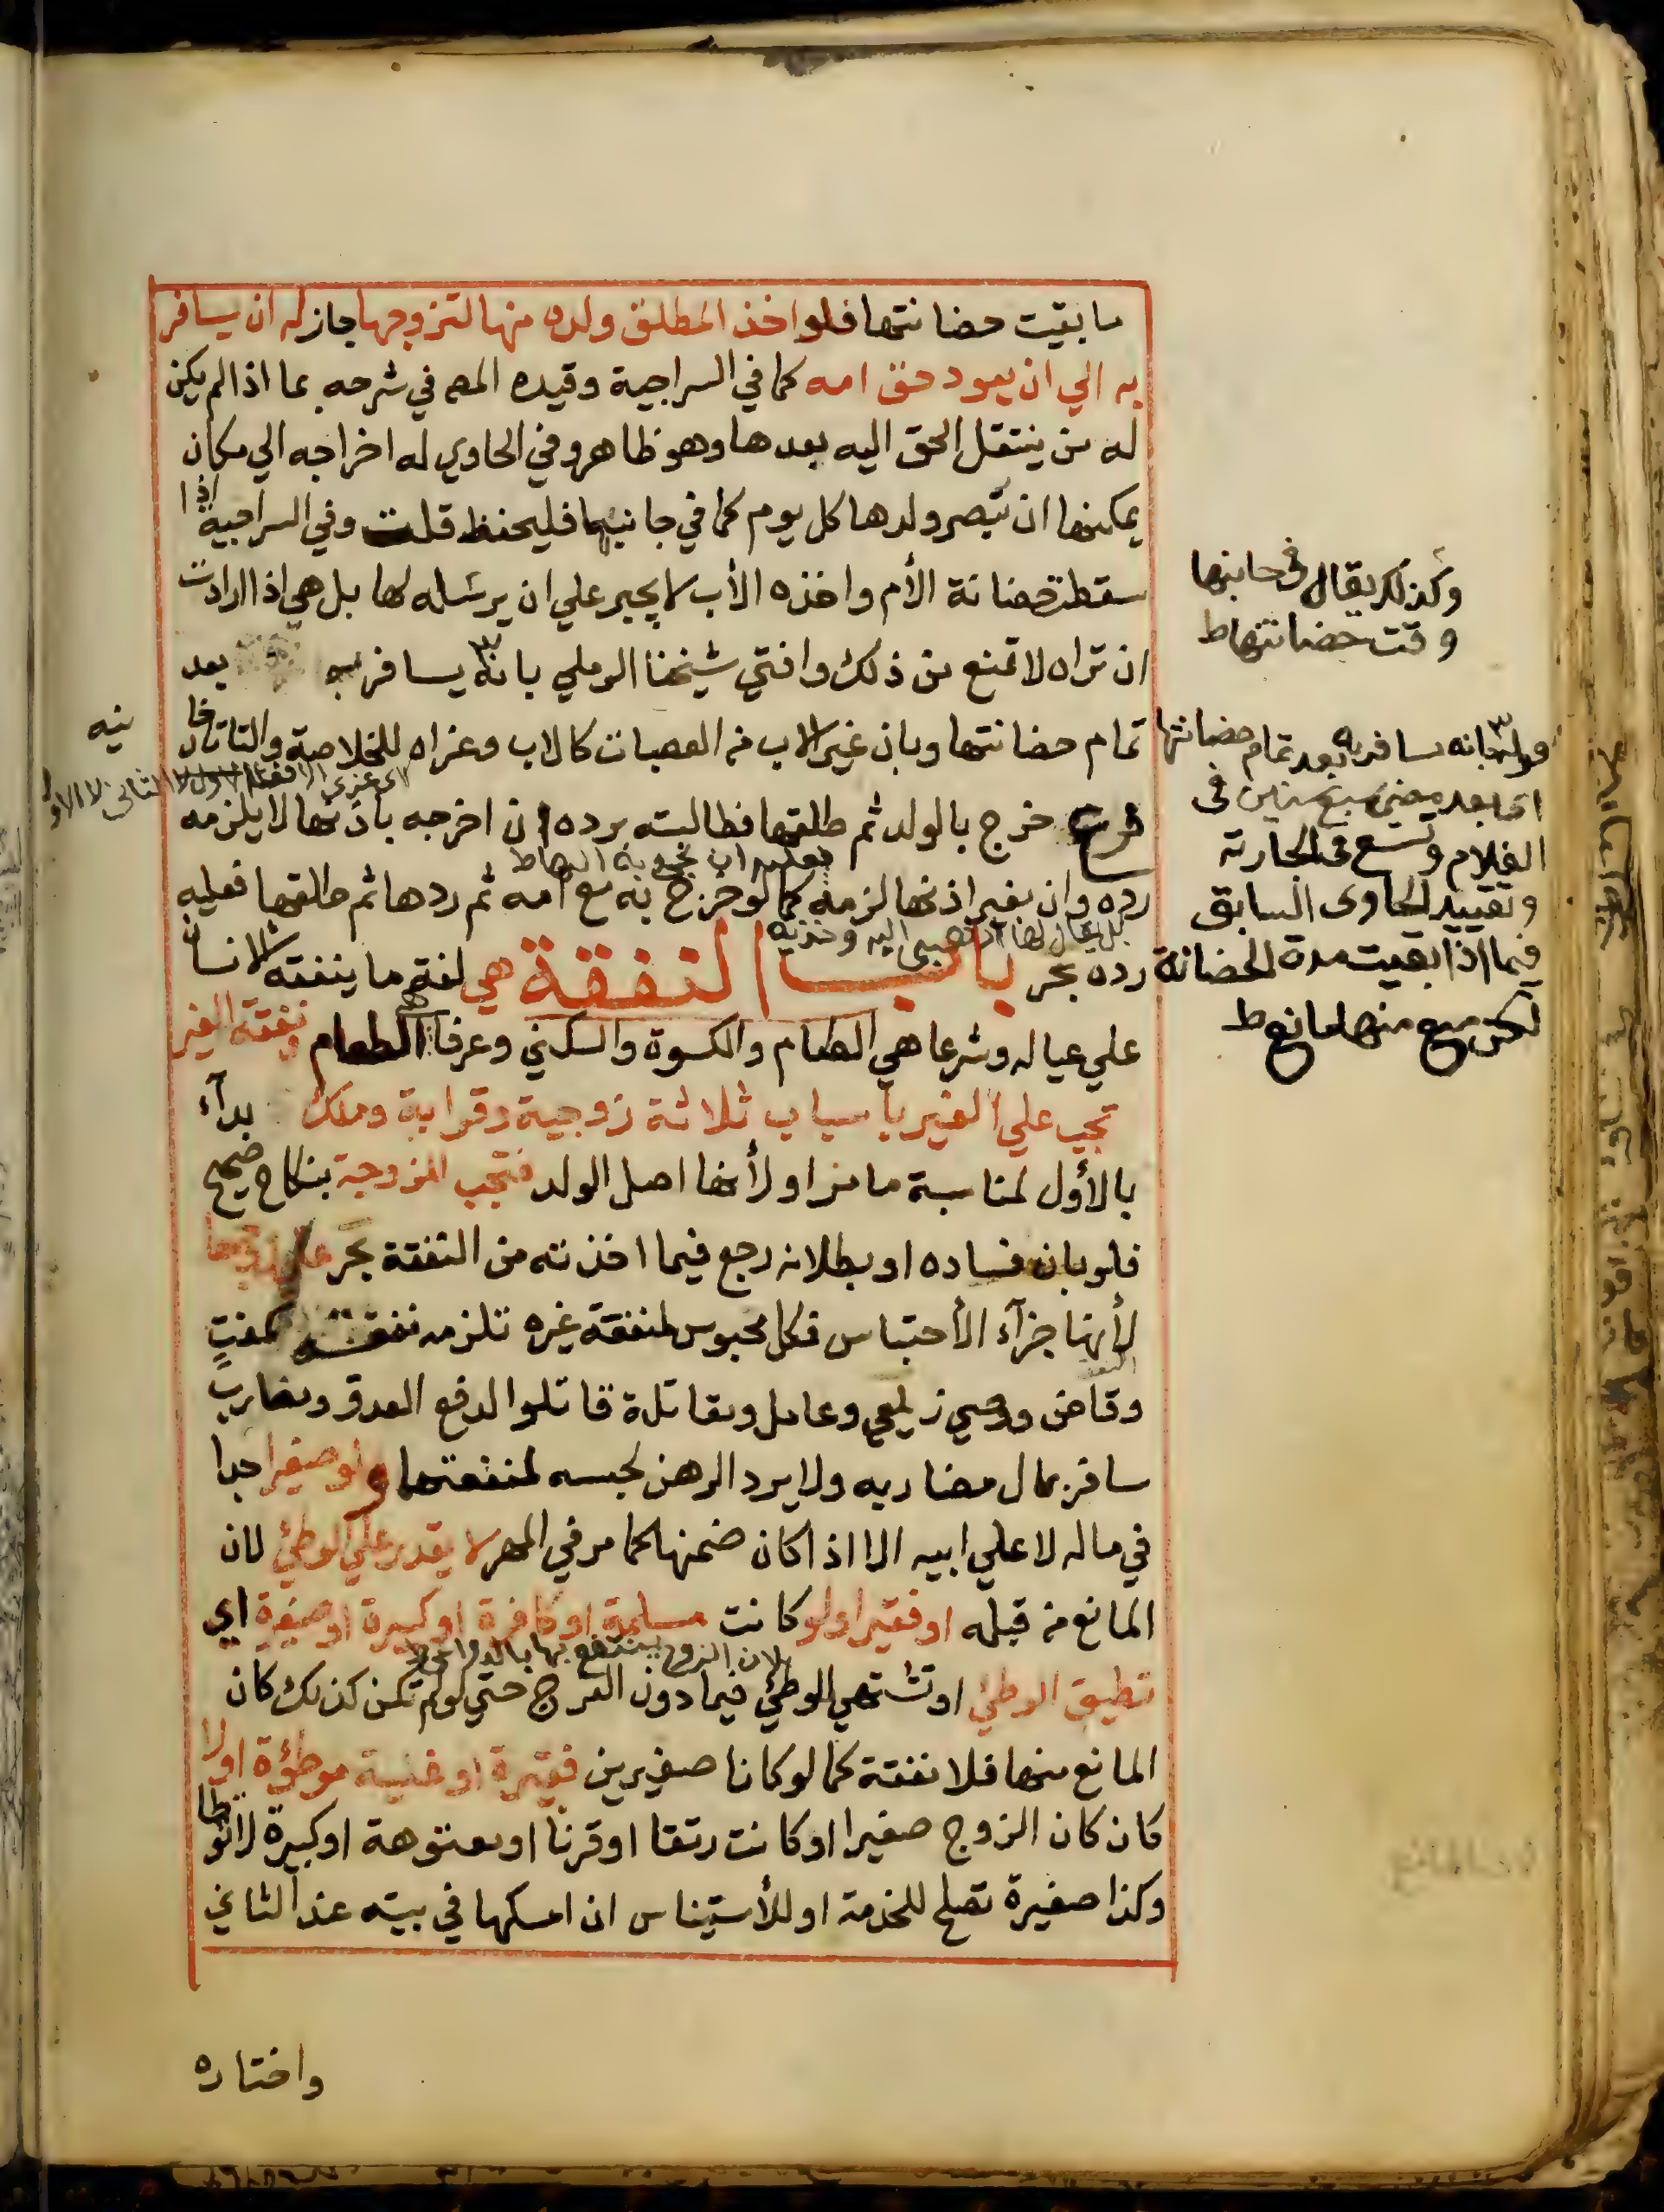 ما بقيت حضانتها فلو اخذ المطلق ولده منها لتزوجها جاز له ان يسافر
به الي ان يعود حق امه كما في السراجية وقيده المص في شرحه بما اذا لم يكن
له من ينتقل الحق اليه بعدها وهو ظاهر وفي الحاوي له اخراجه الي مكان
يمكنها ان تبصر ولدها كل يوم كما في جانبها فليحفظ قلت وفي السراجية اذا
سقطت حضانة الأم واخذه الأب لا يجبر علي ان يرسله لها بل هي اذا ارادت
ان تراه لا تمنع من ذلك وافتي شيخنا الرملي بانه يسافر به بعد
تمام حضانتها وبان غير الاب من العصبات كالاب وعزاه للخلاصة والتاتارخا
نيه
فرع خرج بالولد ثم طلقها فطالبته برده ان اخرجه باذنها لا يلزمه
رده وان بغير اذنها لزمه كما لو خرج به مع امه ثم ردها ثم طلقها فعليه
رده بحر باب النفقة هي لغة ما ينفقه الانسان
علي عياله وشرعا هي الطعام والكسوة والسكني وعرفا هي الطعام ونفقة الغير
تجب علي الغير باسباب ثلاثة زوجية وقرابة وملك بدآء
بالأول لمناسبة ما مر او لأنها اصل الولد فتجب للزوجة بنكاح صحيح
فلو بان فساده او بطلانه رجع فيما اخذته من النفقة بحر علي زوجها
لأنها جزآء الأحتباس فكل محبوس لمنفعة غيره تلزمه نفقته كمفتٍ
وقاض ووصي زيلعي وعامل ومقاتلة قاتلوا لدفع العدو ومضارب
سافر بمال مضاربه ولا يرد الرهن لحبسه لمنفعتهما ولو صغيرا جدا
في ماله لا علي ابيه الا اذا كان ضمنها كما مر في المهر لا يقدر علي الوطئ لان
المانع من قبله او فقيرا ولو كانت مسلمة او كافرة او كبيرة او صغيرة اي
تطيق الوطئ او تشتهي للوطئ فيما دون الفرج حتي لو لم تكن كذلك كان
المانع منها فلا نفقة كما لو كانا صغيرين فقيرة او غنية موطؤة او لا
كان كان الزوج صغيرا او كانت رتقا او قرنا او معتوهة او كبيرة لا توطا
وكذا صغيرة تصلح للخدمة او للأستيناس ان امسكها في بيته عند الثاني
واختاره
وكذلك يقال في جانبها
وقت حضانتها ط
قوله بانه يسافر به بعد تمام حضانتها
اي بعد مضي سبع سنين في
الغلام وتسع في الجارية
وتقييد الحاوي السابق
فيما اذا بقيت مدة الحضانة
لكن منع منها لمانع ط